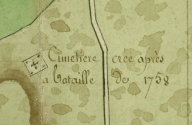 Cimetiere cree après
la bataille de 1758